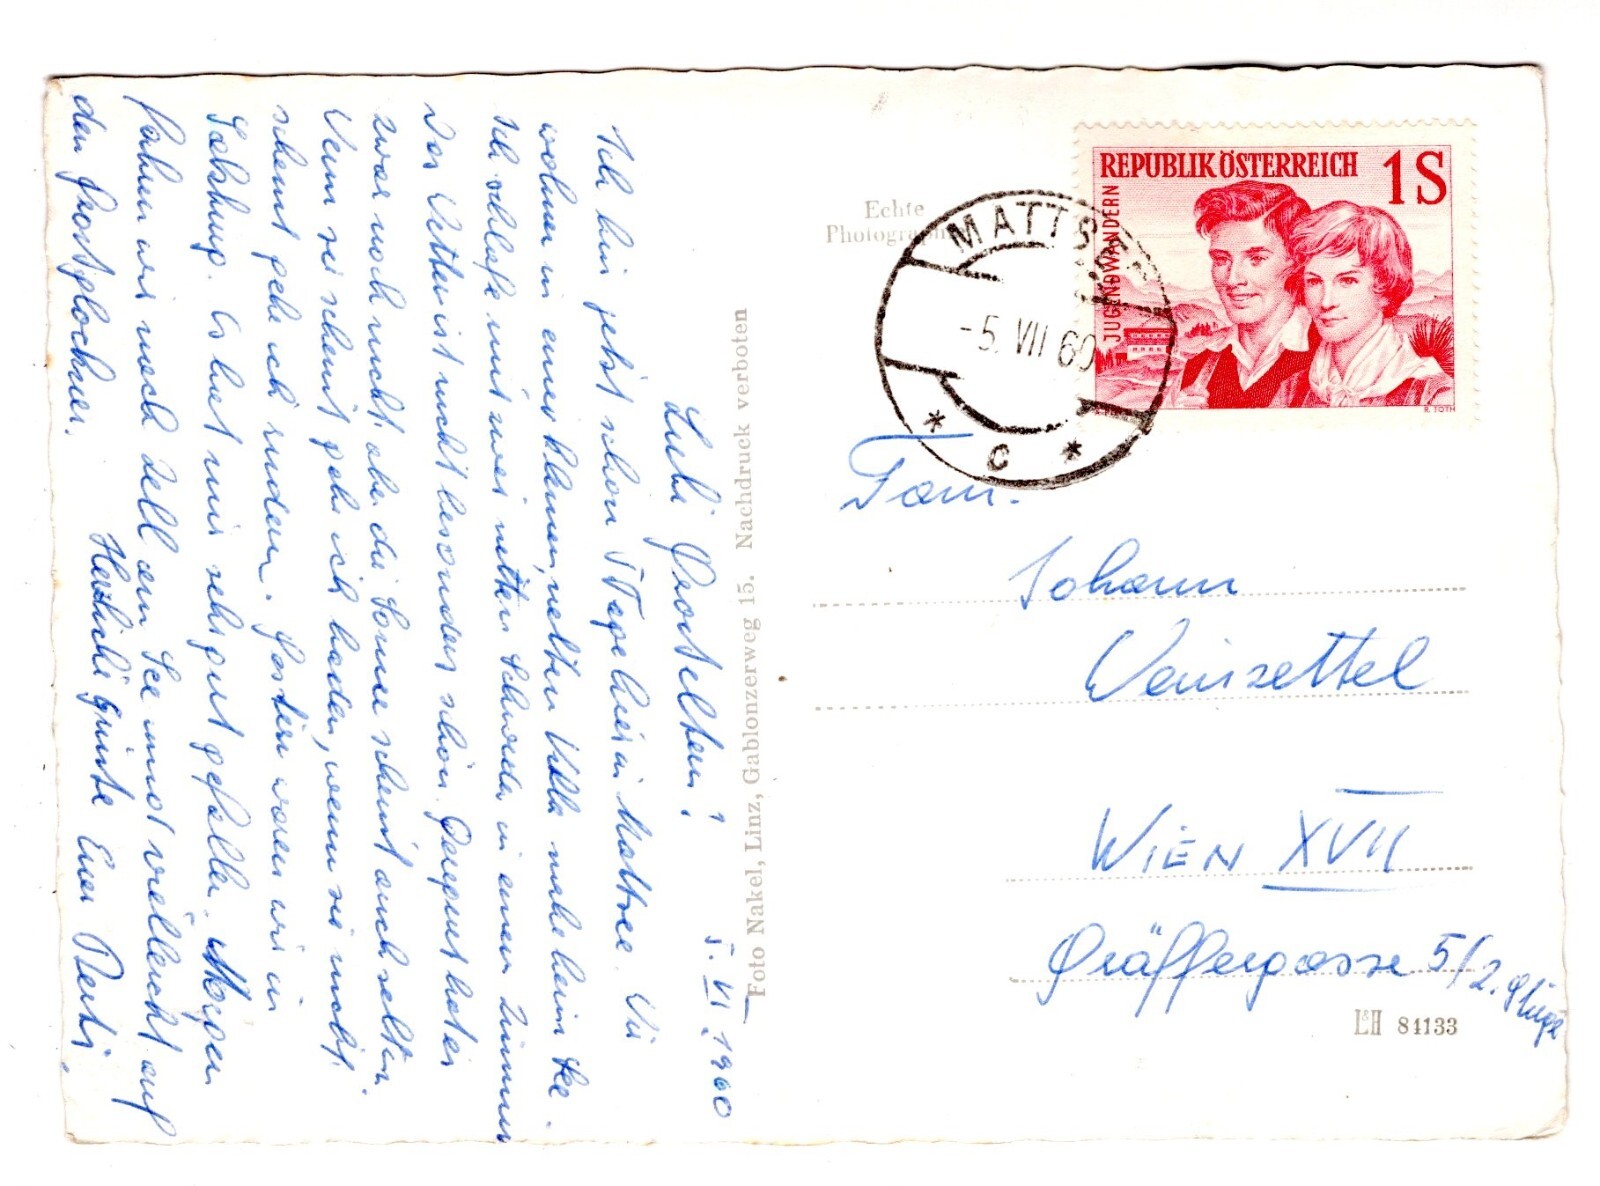 5. VI. 1960
Liebe Großeltern!
Ich bin jetzt schon 5 Tage hier in Mattsee. Wir
wohnen in einer kleinen, netten Villa nahe beim See.
Ich schlafe mit zwei netten Schwede in einem Zimmer
Das Wetter ist nicht besonders schön. Geregnet hat es
zwar noch nicht, aber die Sonne scheint auch selten.
Wenn sie scheint gehe ich baden, wenn sie nicht
scheint gehe ich rudern. Gestern waren wir in
Salzburg. Es hat mir sehr gut gefallen. Morgen
fahren wir nach Zell am See und vielleicht auf
den Großglockner.
Herzliche Grüße Euer Berti.
Foto Nakel, Linz, Gablonzerweg 15. Nachdruck verboten
Echte
Photographie
MATTSEE
-5. VII 60
* C *
REPUBLIK ÖSTERREICH 1 S
JUGENDWANDERN
R. TOTH
Fam.
Johann
Weinzettel
WIEN XVII
Gräffergasse 5/2. Stiege
L&H 84133